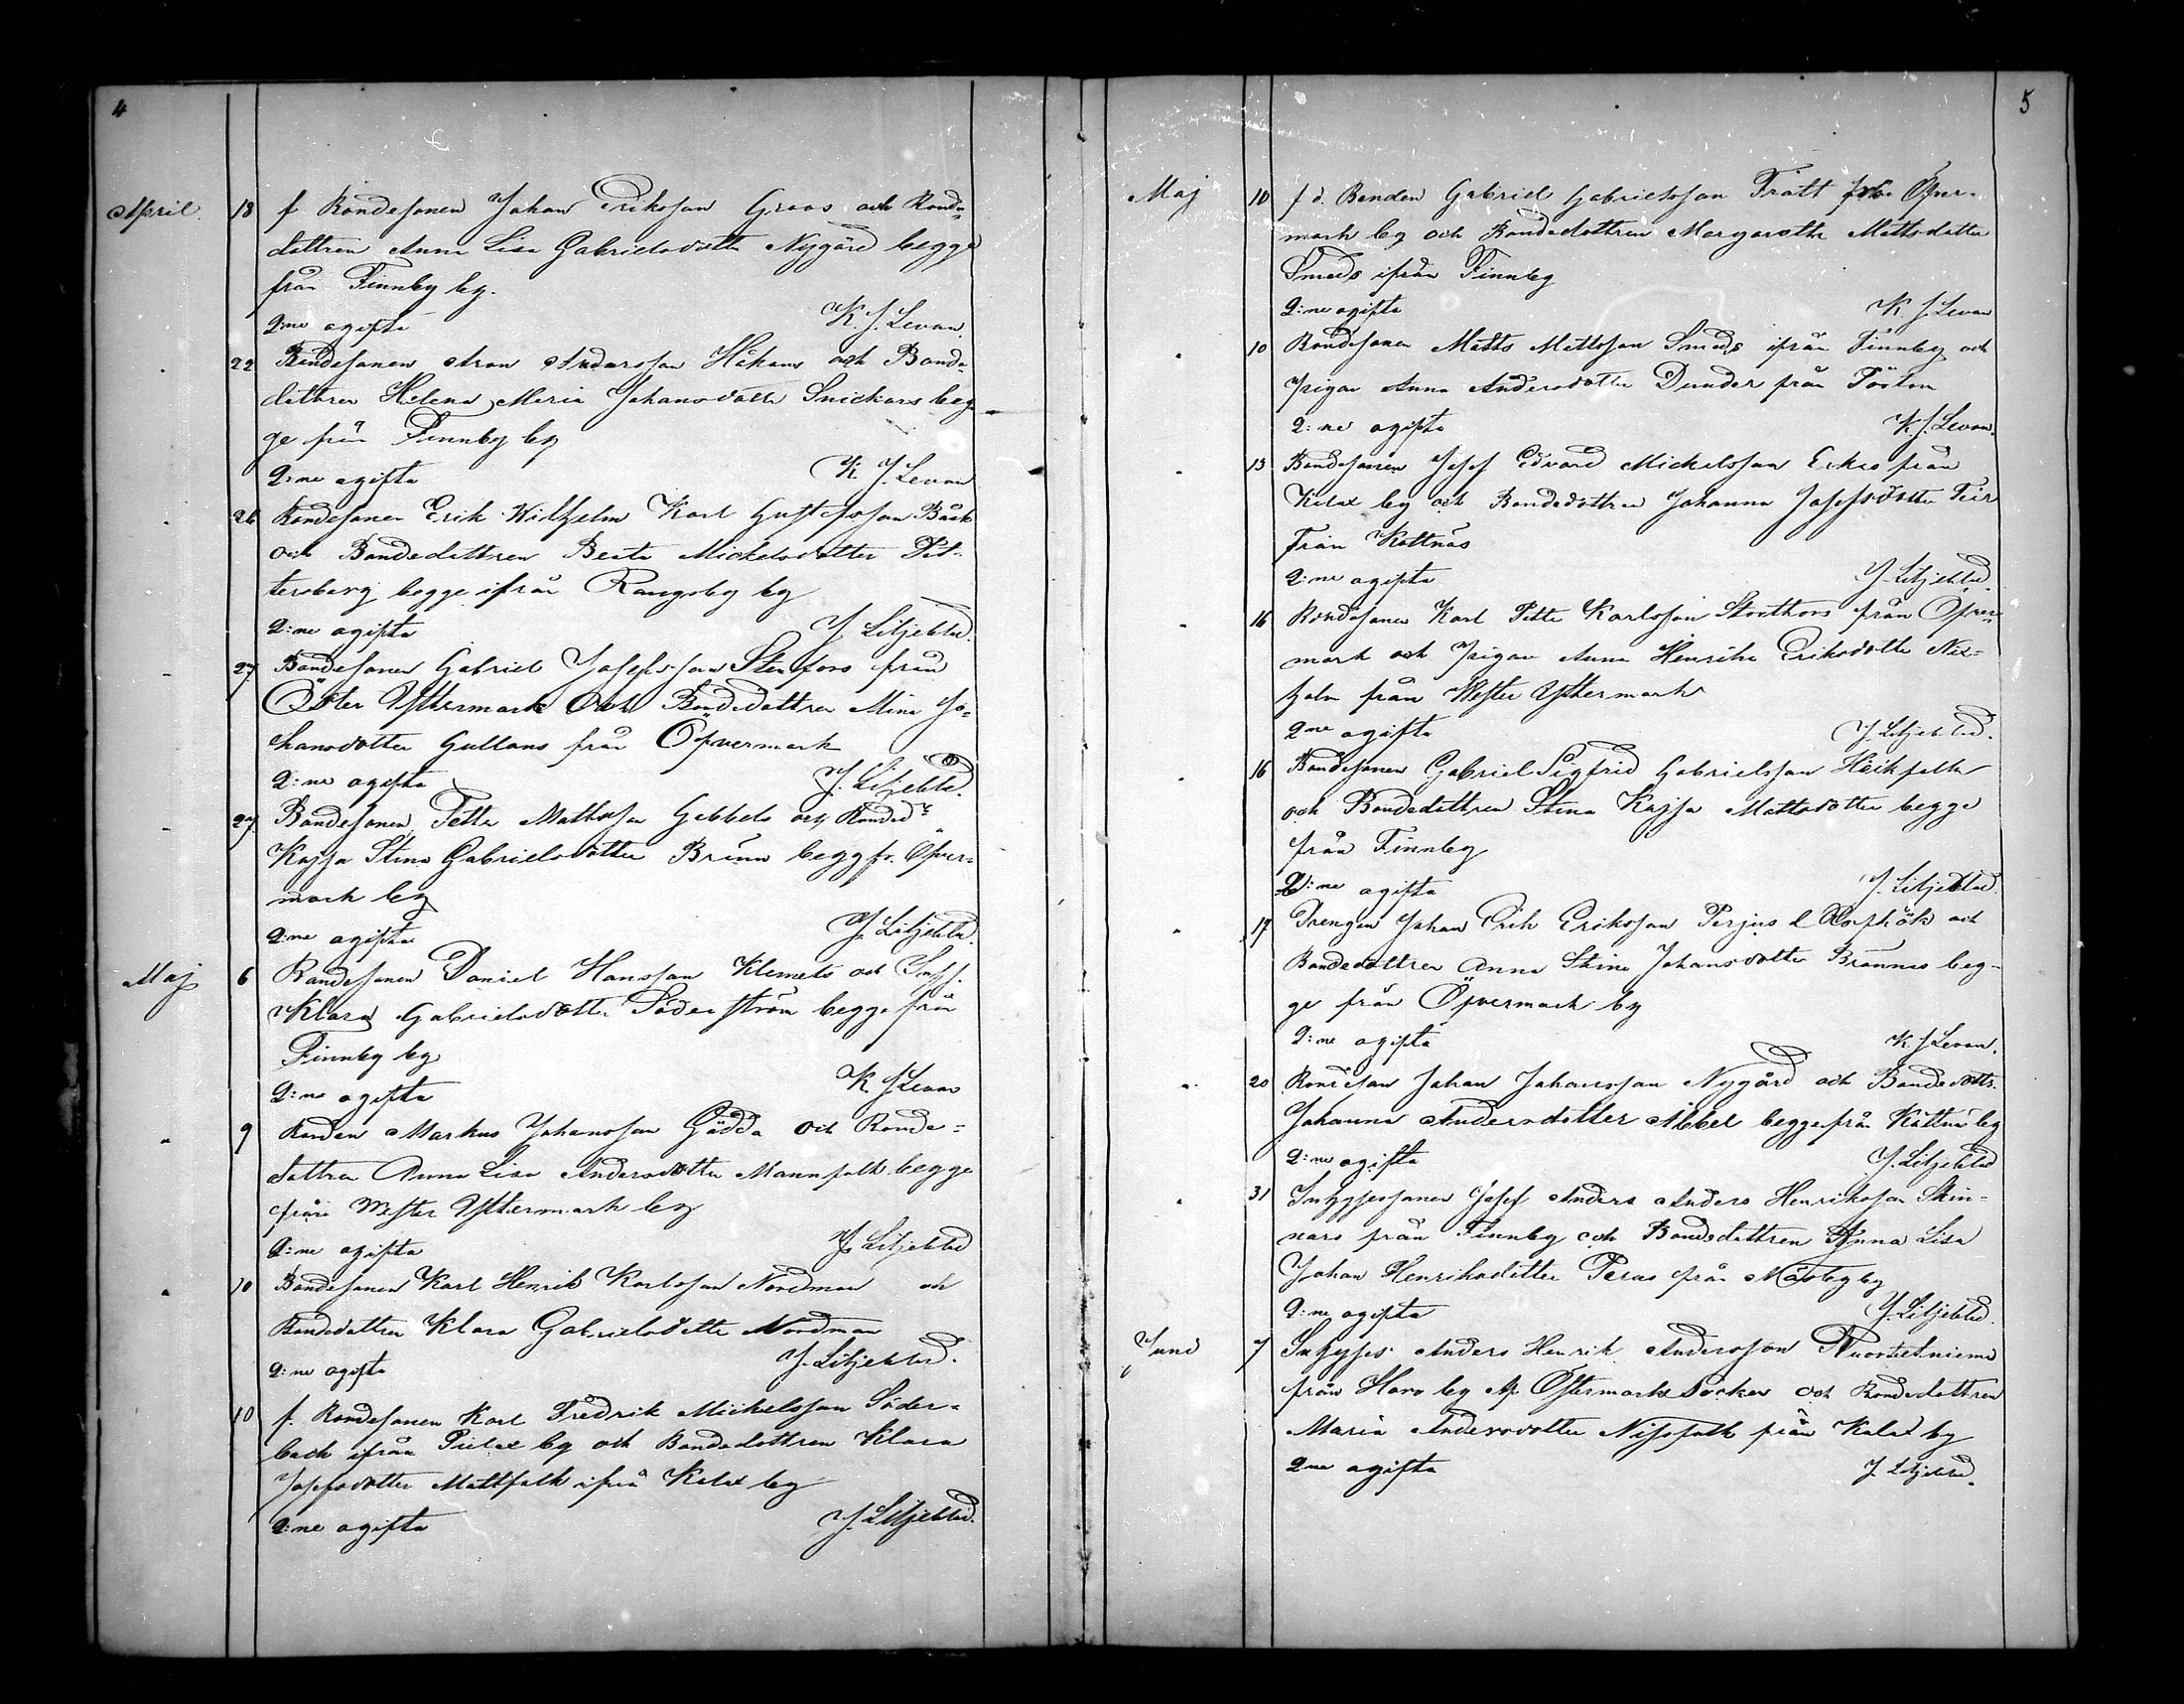 4
April. 18 f Bondesonen Johan Eriksson Groos och Bonde-
dottren Anna Lisa Gabrielsdotter Nygård begge
från Finnby by.
2:ne ogifta K. J. Levan.
22 Bondesonen Aron Andersson Håkans och Bonde-
dottren Helena Maria Johansdotter Snickars beg-
ge från Finnby by
2:ne ogifta K. J. Levan
26 Bondesonen Erik Wilhelm Karl Gustafsson Bäck
och Bondedottren Beata Mickelsdotter Pet-
tersberg begge ifrån Rangsby by
2:ne ogifta J. Liljeblad.
27 Bondesonen Gabriel Josefsson Stenfors från
Öster Yttermark och Bondedottren Mina Jo-
hansdotter Gullans från Öfvermark
2:ne ogifta J. Liljeblad.
27 Bondesonen Petter Mattsson Gebbels och Bonded:r
Kajsa Stina Gabrielsdotter Bränn begg fr. Öfver-
mark by
2:ne ogifta J. Liljeblad.
Maj 6 Bondesonen Daniel Hansson Klemets och
Klara Gabrielsdotter Söderström begge från
Finnby by
2:ne ogifta K J Levan
" 9 Bonden Markus Johansson Gädda och Bonde-
dottren Anna Lisa Andersdotter Mannfolk begge
från Wester Yttermark by
2:ne ogifta J. Liljeblad
" 10 Bondesonen Karl Henrik Karlsson Nordman och
Bondedottren Klara Gabrielsdotter Nordman
2:ne ogifta J. Liljeblad.
10 f. Bondesonen Karl Fredrik Mickelsson Söder-
back ifrån Pielax by och Bondedottren Klara
Josefsdotter Mattfolk ifrån Kalax by
2:ne ogifta J. Liljeblad.
5
Maj 10 f d. Bonden Gabriel Gabrielsson Trätt från Öfver-
mark by och Bondedottren Margaretha Mattsdotter
Smeds ifrån Finnby
2:ne ogifta K. J. Levan
" 10 Bondesonen Matts Mattsson Smeds ifrån Finnby och
Pigan Anna Andersdotter Dunder från Töstom
2:ne ogifta K. J. Levan.
" 13 Bondesonen Josef Edvard Mickelsson Erkes från
Kalax by och Bondedottren Johanna Josefsdotter Teir
från Kottnäs
2:ne ogifta J. Liljeblad.
" 16 Bondesonen Karl Petter Karlsson Storthors från Öfver-
mark och Pigan Anna Henrika Eriksdotter Nix-
holm från Wester Yttermark
2:ne ogifta J. Liljeblad.
" 16 Bondesonen Gabriel Sigfrid Gabrielsson Heikfolk
och Bondedottren Stina Kajsa Mattsdotter begge
från Finnby
2:ne ogifta J. Liljeblad.
" 17 Drengen Johan Erik Eriksson Perjus l. och
Bondedottren Anna Stina Johansdotter Brännes beg-
ge från Öfvermark by
2:ne ogifta K. J. Levan.
" 20 Bondeson Johan Johansson Nygård och Bondedottr.
Johanna Andersdotter Abbel begge från Kåttnäs by
2:ne ogifta J. Liljeblad
" 31 Inhysessonen Josef Anders Anders Henriksson Skin-
nars från Finnby och Bondedottren Anna Lisa
Johan Henriksdotter Perus från Måsby by
2:ne ogifta J. Liljeblad.
Juni 7 Inhyses Anders Henrik Andersson
från Horo by af Östermarks Socken och Bondedottren
Maria Andersdotter Nissfolk från Kalax by
2:ne ogifta J. Liljeblad.